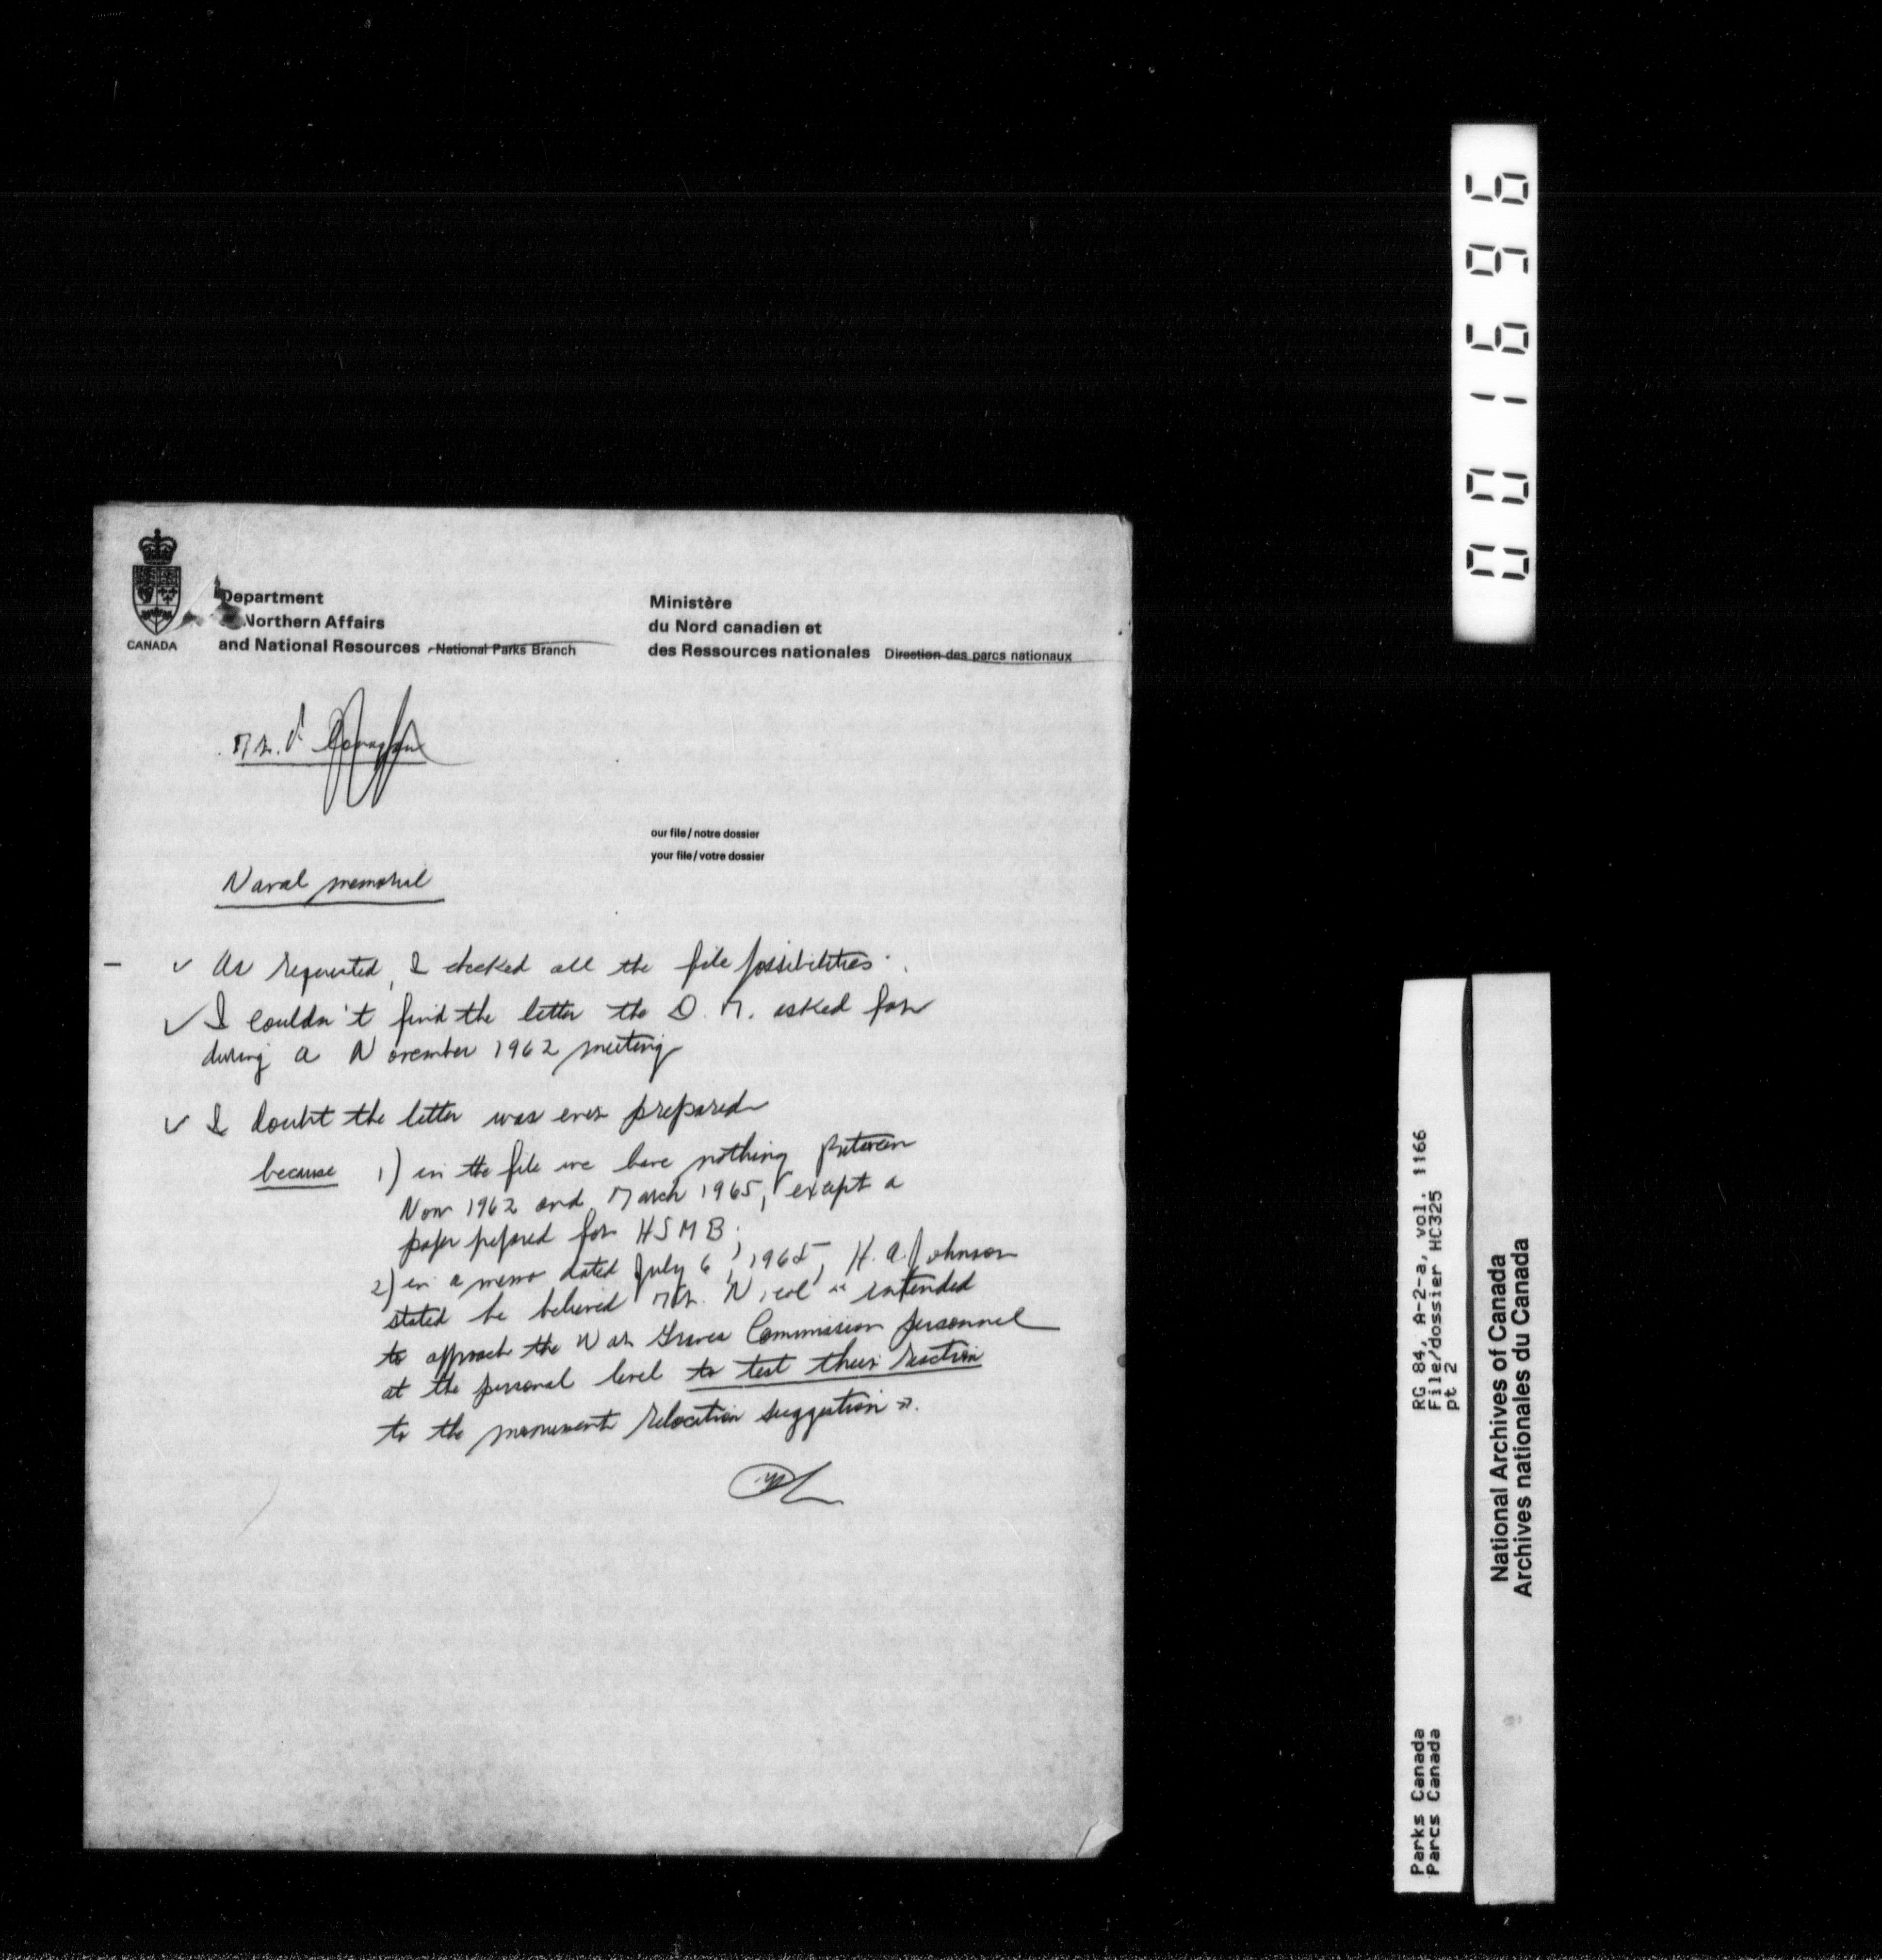 CANADA
Department
Northern Affairs
and National Resources National Parks Branch
Ministère
du Nord canadien et
des Ressources nationales Direction des parcs nationaux
our file / notre dossier
your file / votre dossier
Naval memorial
As requested, I checked all the file possibilities.
I couldn't find the letter the D. M. asked for
during a November 1962 meeting
I doubt the letter was ever prepared
because 1) in the file we have nothing between
Nov 1962 and March 1965, except a
paper prepared for HSMB;
2) in a memo dated July 6, 1965, H. A. Johnson
stated he believed Mr. Nicol « intended
to approach the War Graves Commission personnel
at the personal level to test their reaction
to the monument relocation suggestion ».
001696
RG 84, A-2-a, vol. 1166
File/dossier HC325
pt 2
Parks Canada
Parcs Canada
National Archives of Canada
Archives nationales du Canada